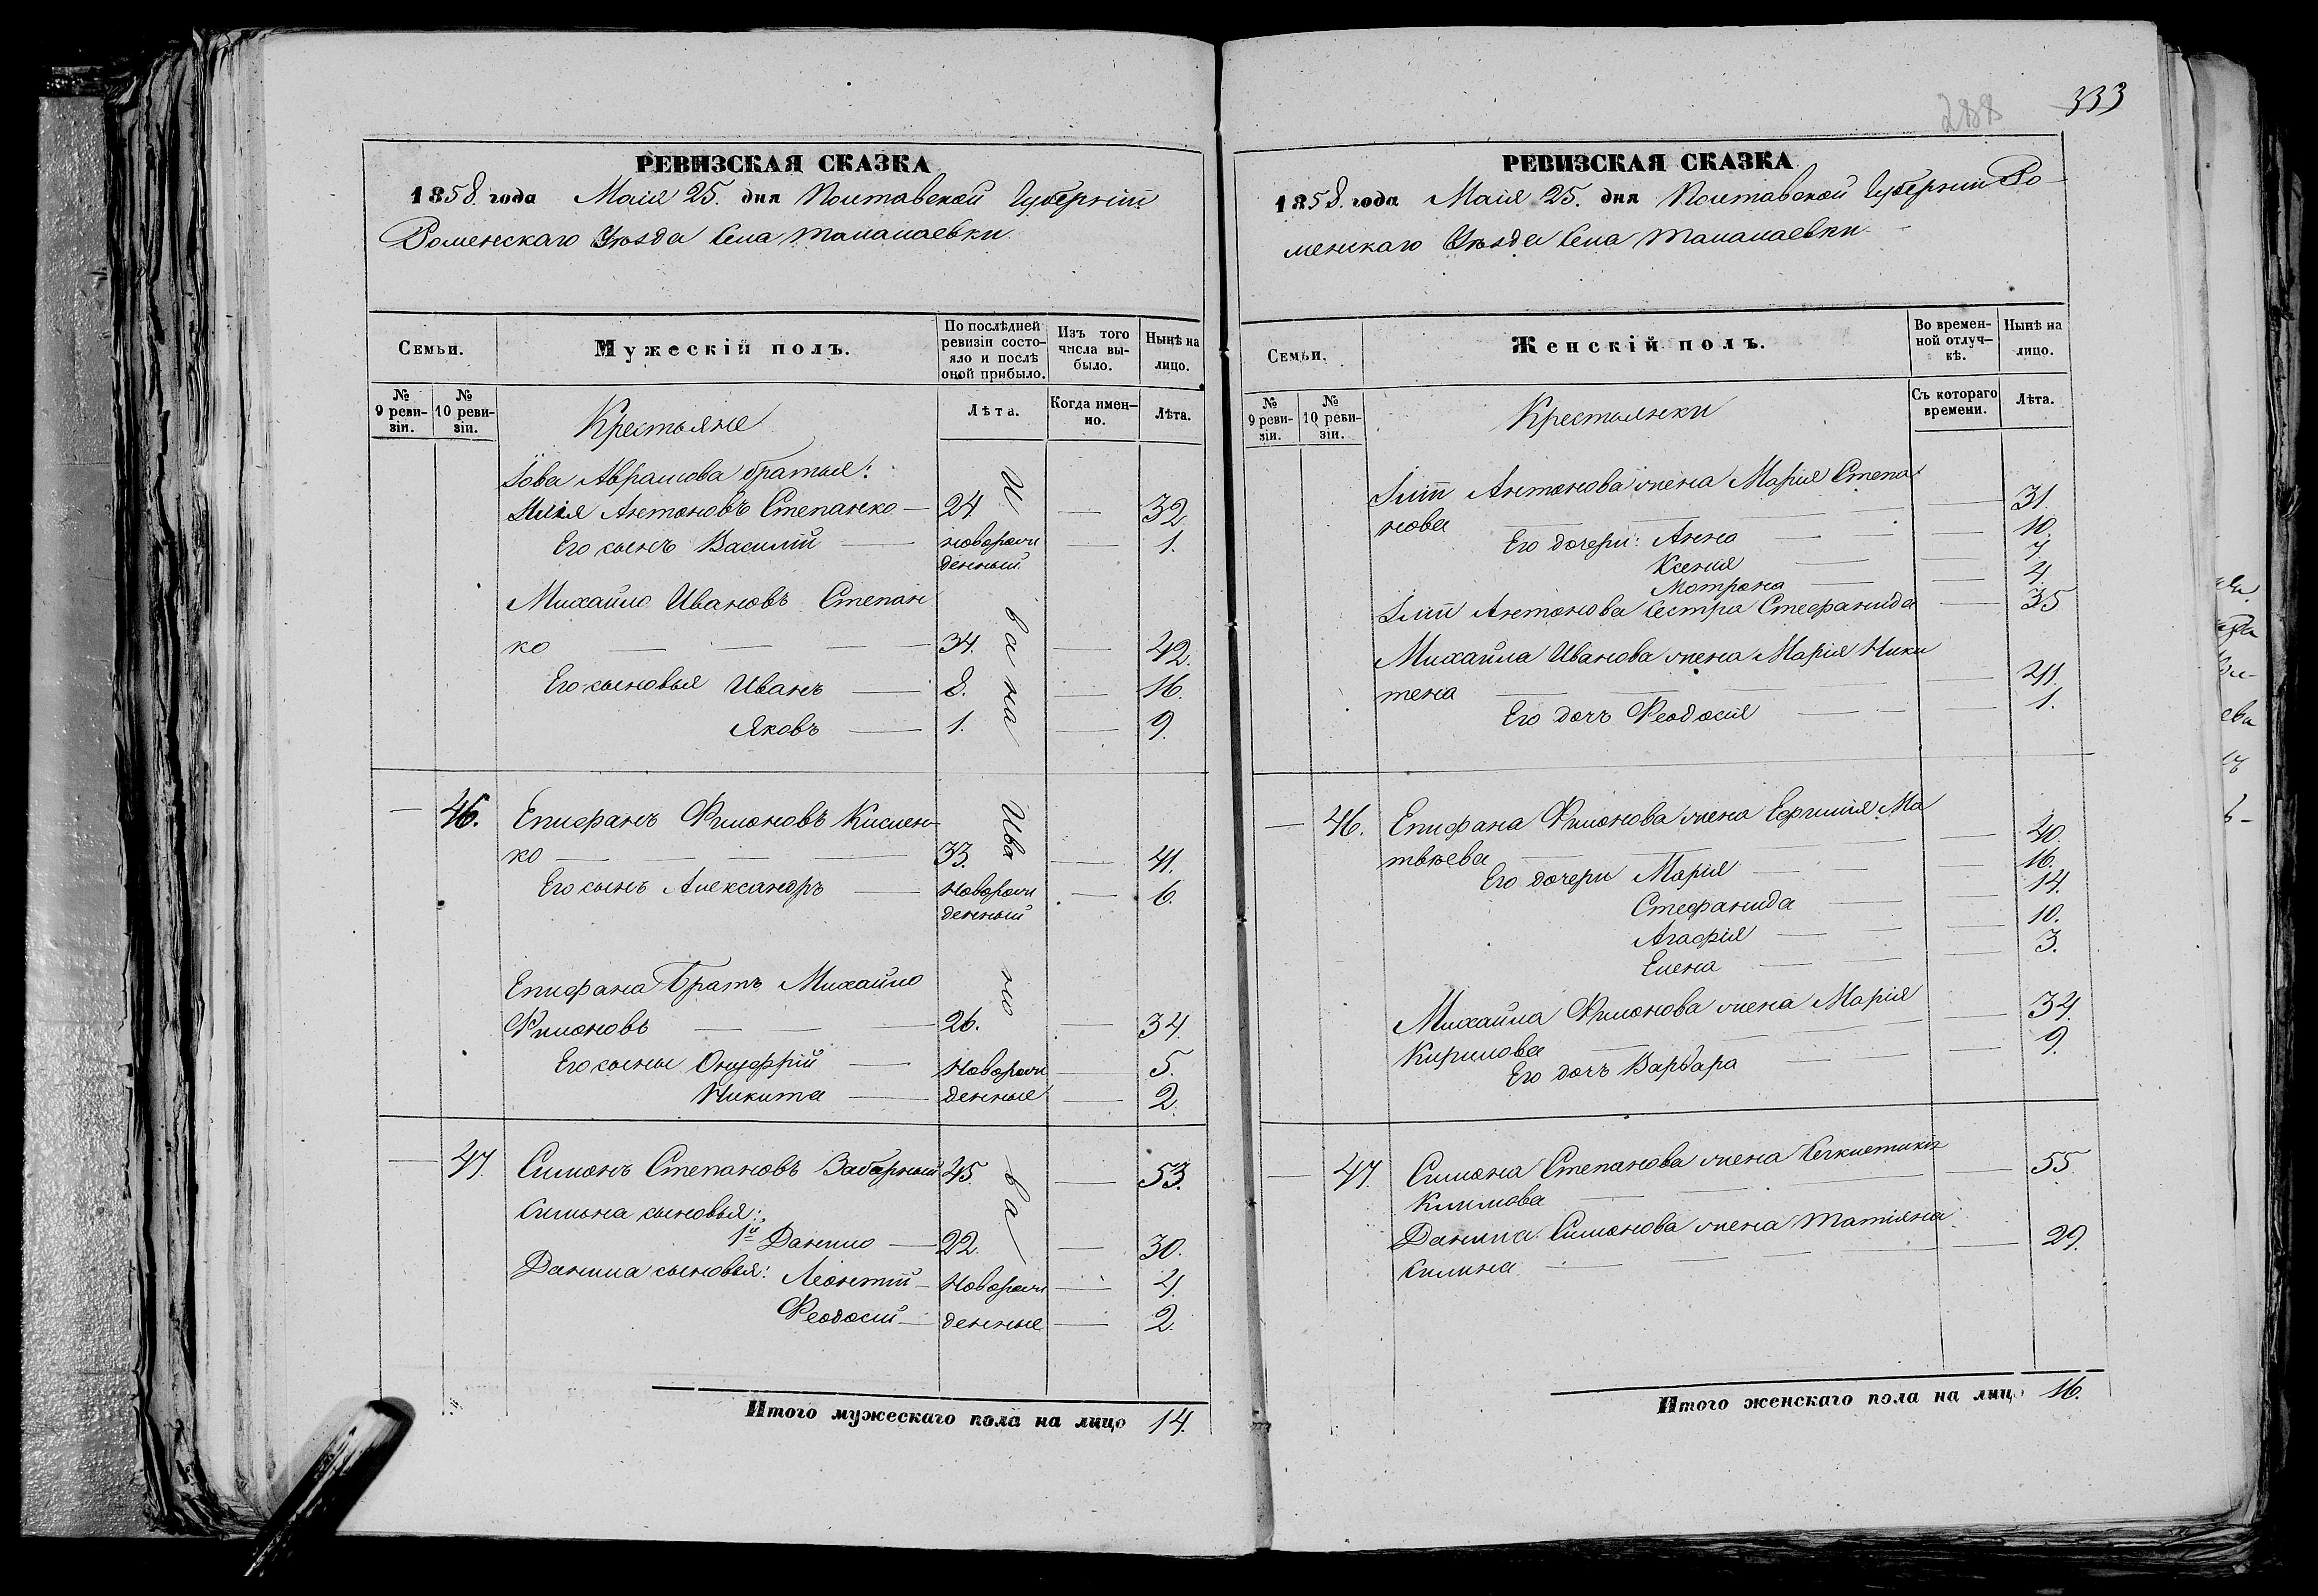 288 333
РЕВИЗСКАЯ СКАЗКА
1858. года Маія 25. дня Полтавской Губерніи
Роменскаго Уѣзда Села Талалаевки.
Семьи.
Мужескій полъ.
По послѣдней ревизіи состояло и послѣ оной прибыло.
Изъ того числа выбыло.
Нынѣ на лицо.
№ 9 ревизіи.
№ 10 ревизіи.
Крестьяне
Лѣта.
Когда именно.
Лѣта.
Іова Аврамова братья:
Илія Антоновъ Степанко — 24 — 32
Его сынъ Василій — новорож — 1.
денный
Михайло Ивановъ Степан
ко — — — — 34. — 42.
Его сыновья Иванъ — 8. — 16.
Яковъ — 1. — 9.
— 46. Епифанъ Филоновъ Кислен
ко — — — — 33. — 41.
Его сынъ Александръ — Новорож — 6.
денный
Епифана Братъ Михайло
Филоновъ — — — 26. — 34.
Его сыны Онуфрій — Новорож — 5.
Никита — денные — 2.
— 47. Симонъ Степановъ Забарный 45. — 53.
Симона сыновья:
1й Данило — 22. — 30.
Данила сыновья: Леонтій — Новорож — 4.
Феодосій — денные — 2.
Ивана
Ивано
ва
Итого мужескаго пола на лицо 14.
РЕВИЗСКАЯ СКАЗКА
1858. года Маія 25. дня Полтавской Губерніи Ро-
менскаго Уѣзда Села Талалаевки.
Семьи.
Женскій полъ.
Во временной отлучкѣ.
Нынѣ на лицо.
№ 9 ревизіи.
№ 10 ревизіи.
Крестьянки
Съ котораго времени.
Лѣта.
Іліи Антонова жена Марія Степа
нова — — — — 31.
Его дочери: Анна — — — 10.
Ксенія — — 7.
Мотрона — — 4.
Іліи Антонова Сестра Стефанида — 35
Михайла Иванова жена Марія Ники
тена — — — — 41.
Его дочъ Феодосія — — — 1.
— 46. Епифана Филонова жена Ефимія Ма
твѣева — — — — 40.
Его дочери Марія — — — 16.
Стефанида — — — 14.
Агафія — — — 10.
Елена — — — 3.
Михайла Филонова жена Марія
Кирилова — — — — 34.
Его дочъ Варвара — — — 9.
— 47. Симона Степанова жена
Климова — — — — 55.
Данила Симонова жена Татіяна
Силина — — — — 29.
Итого женскаго пола на лицо 16.